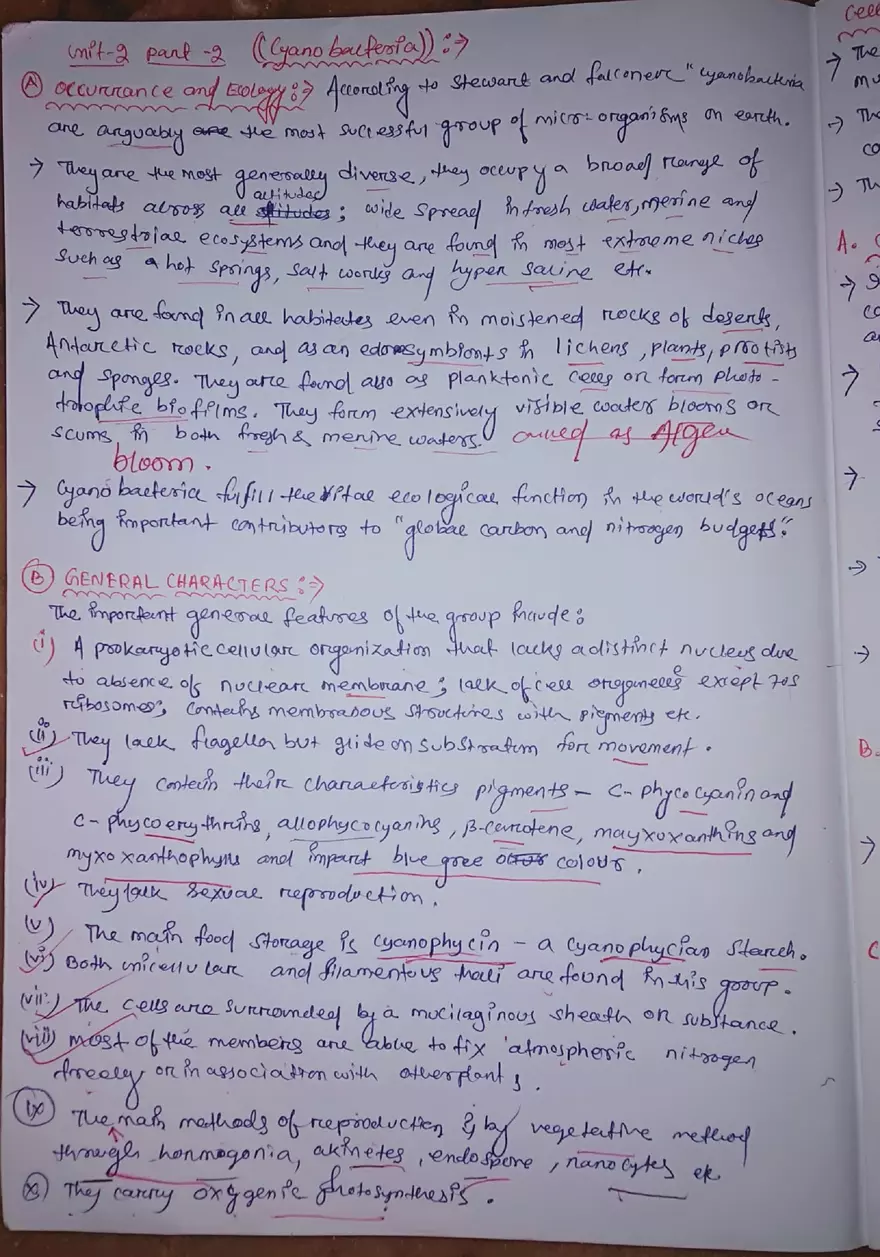 Unit-2 part-2 ((Cyanobacteria)) :→
(A) Occurrance and Ecology :→ According to Stewart and falconerc "cyanobacteria
are arguably are the most successful group of micro-organisms on earth.
→ They are the most generally diverse, they occupy a broad range of
altitudes
habitats across all altitudes; wide spread in fresh water, merine and
terrestrial ecosystems and they are found in most extreme niches
such as a hot springs, salt works and hyper saline etc.
→ They are found in all habitates even in moistened rocks of deserts,
Antarctic rocks, and as an edosymbionts in lichens, plants, protists
and sponges. They are found also as planktonic cells or form photo-
trophic biofilms. They form extensively visible water blooms or
scums in both fresh & merine waters. called as Algal
bloom.
→ Cyanobacteria fulfill the vital ecological function in the world's oceans
being important contributors to "global carbon and nitrogen budgets".
(B) GENERAL CHARACTERS :→
The important general features of the group include:
(i) A prokaryotic cellular organization that lacks a distinct nucleus due
to absence of nuclear membrane; lack of cell organelles except 70s
ribosomes; contains membranous structures with pigments etc.
(ii) They lack flagella but glide on substratum for movement.
(iii) They contain their characteristics pigments - C-phycocyanin and
C-phycoerythrins, allophycocyanins, β-carotene, mayxoxanthins and
myxoxanthophylls and impart blue gree colour.
(iv) They lack sexual reproduction.
(v) The main food storage is cyanophycin - a cyanophycian starch.
(vi) Both unicellular and filamentous thalli are found in this group.
(vii) The cells are surrounded by a mucilaginous sheath or substance.
(viii) most of the members are able to fix atmospheric nitrogen
freely or in association with other plants.
(ix) The main methods of reproduction is by vegetative method
through hormogonia, akinetes, endospore, nanocytes etc
(x) They carry oxygenic photosynthesis.
Cell
→ The
mu
→ The
co
→ Th
A.
→
co
→
→
→
→
B.
→
C